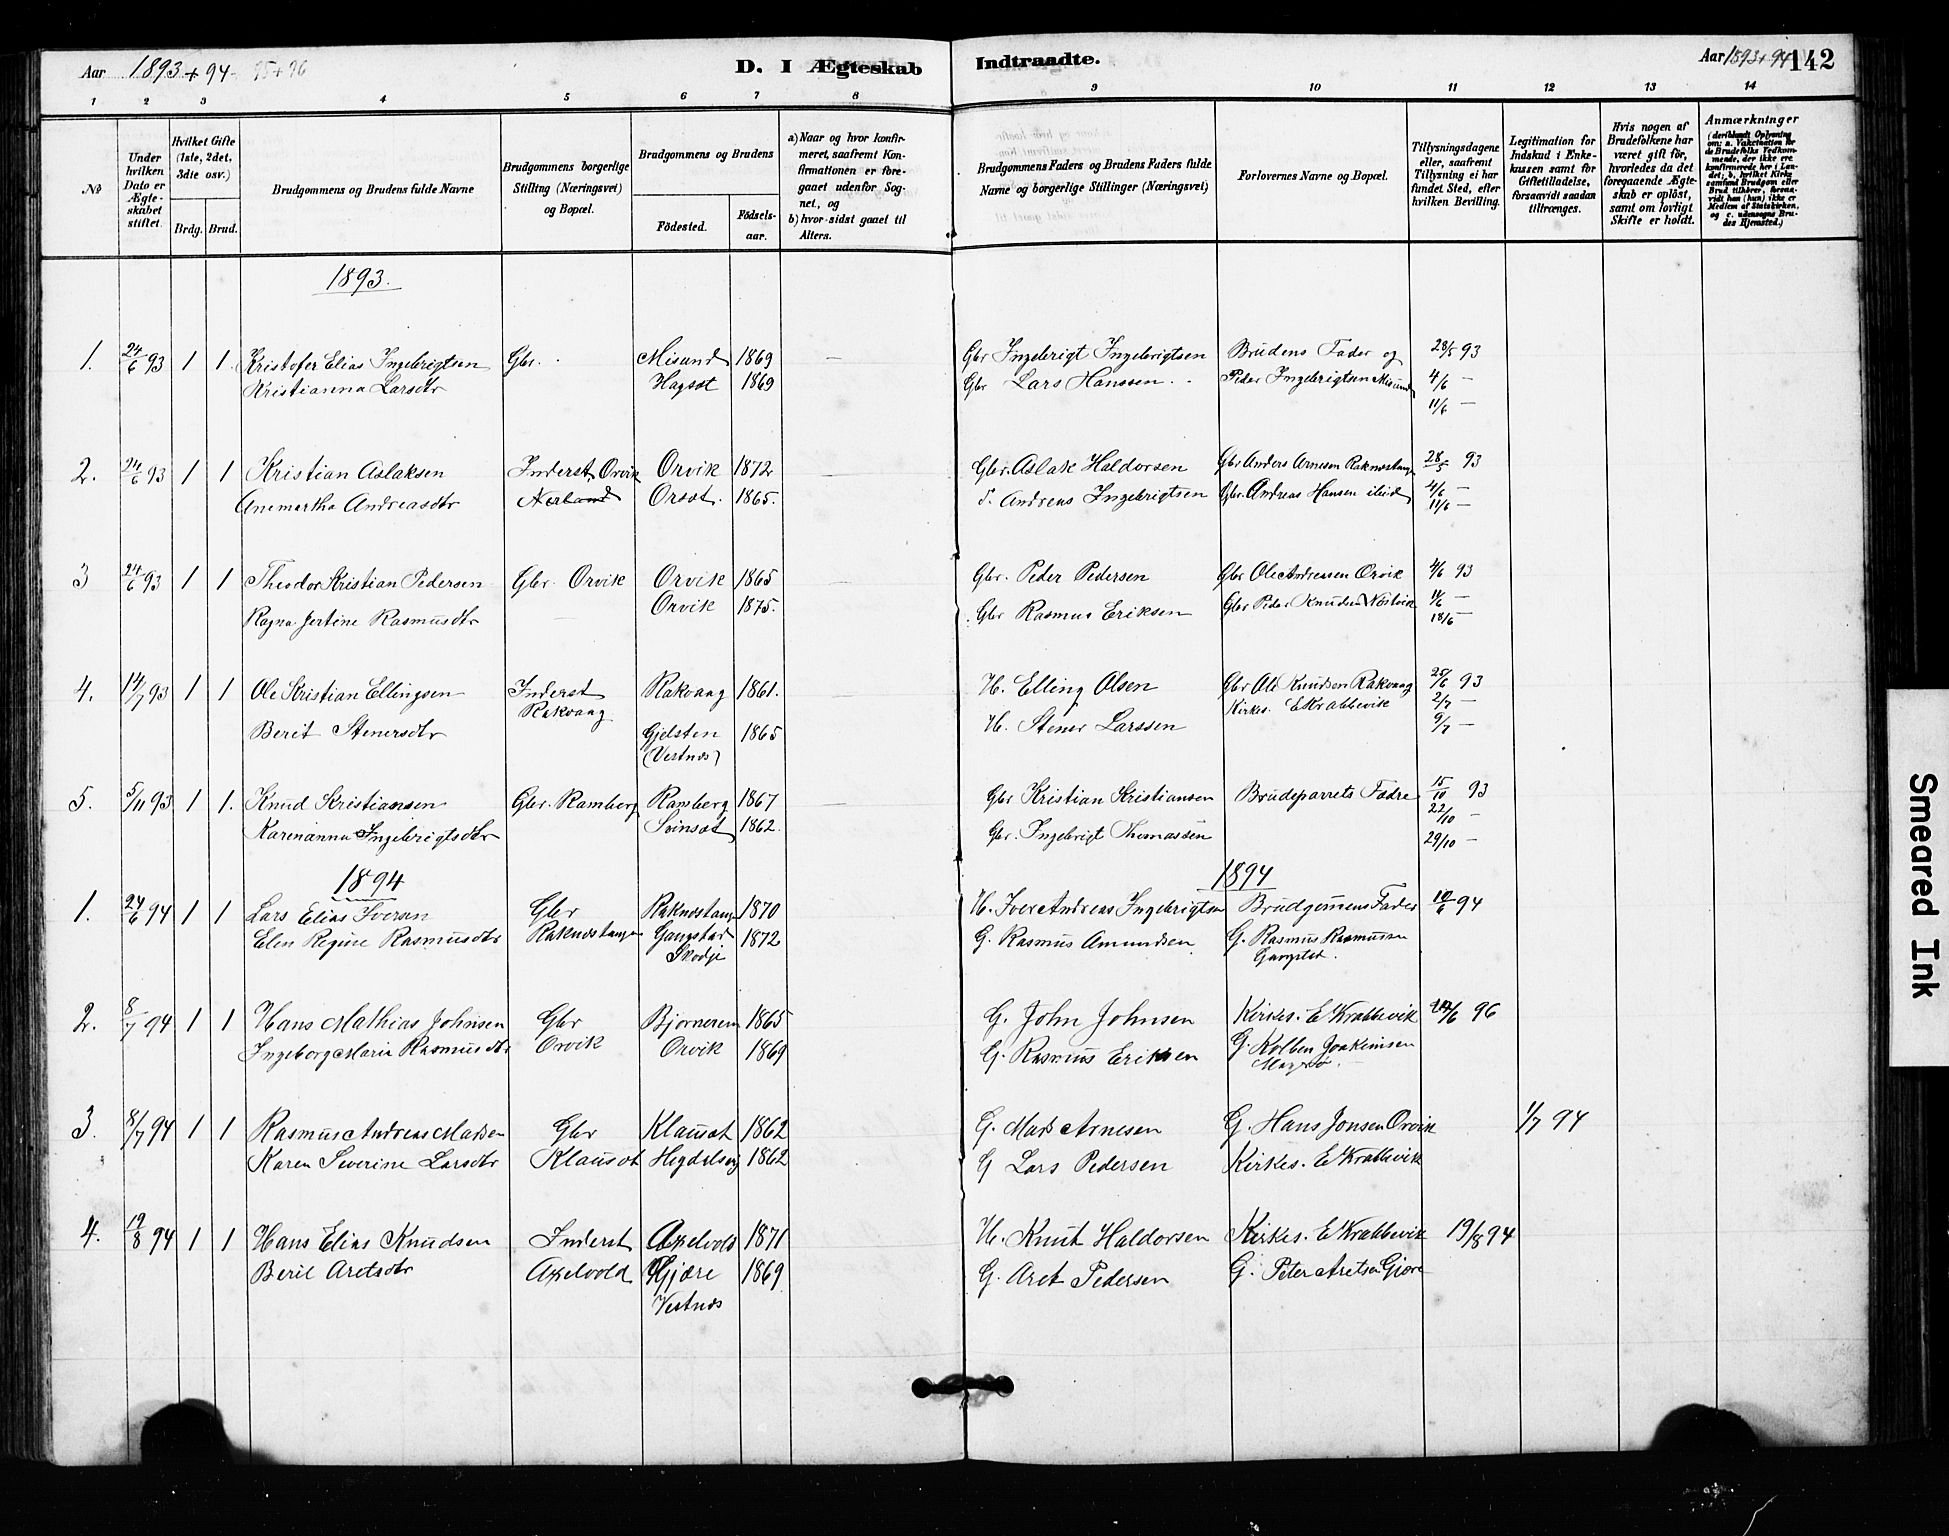 Aar 1893 + 94 95 + 96
D. I Ægteskab Indtraadte.
Aar 1893 + 94 142
1 2 3 4 5 6 7 8 9 10 11 12 13 14
No
Under hvilken Dato er Ægteskabet stiftet.
Hvilket Gifte (1ste, 2det, 3die osv.)
Brdg. Brud.
Brudgommens og Brudens fulde Navne
Brudgommens borgerlige Stilling (Næringsvei) og Bopæl.
Brudgommens og Brudens
Födested. Födselsaar.
a) Naar og hvor konfirmeret, saafremt Konfirmationen er foregaaet udenfor Sognet, og
b) hvor sidst gaaet til Alters.
Brudgommens Faders og Brudens Faders fulde Navne og borgerlige Stillinger (Næringsvei)
Forlovernes Navne og Bopæl.
Tillysningsdagene eller, saafremt Tillysning ei har fundet Sted, efter hvilken Bevilling.
Legitimation for Indskud i Enkekassen samt for Giftetilladelse, forsaavidt saadan tiltrænges.
Hvis nogen af Brudefolkene har været gift før, hvorledes da det foregaaende Ægteskab er oplöst, samt om lovligt Skifte er holdt.
Anmærkninger
(deriblandt Oplysning om: a. Vakcination for de Brudefolks Vedkommende, der ikke ere konfirmerede her i Landet; b. hvilket Kirkesamfund Brudgom eller Brud tilhører, forsaavidt han (hun) ikke er Medlem af Statskirken, og c. udensogns Brudes Hjemsted.)
1893.
1. 24/6 93 1 1. Kristofer Elias Ingebrigtsen Gbr. Misund 1869 Gbr Ingebrigt Ingebrigtsen Brudens Fader og 28/5 93
Kristianna Larsdtr Hagsæt 1869 Gbr Lars Hanssen Peder Ingebrigtsen Misund 4/6 —
11/6 —
2. 24/6 93 1 1 Kristian Aslaksen Inderst Orvik Orvik 1872 Gbr. Aslak Haldorsen Gbr Anders Arnesen Raknestangen 28/5 93
Anemartha Andreasdtr Orsæt. 1865. Andreas Ingebrigtsen Gbr. Andreas Hansen ibid 4/6 —
11/6 —
3 24/6 93 1 1 Theodor Kristian Pedersen Gbr. Orvik Orvik 1865 Gbr. Peder Pedersen Gbr Ole Andreasen Orvik 4/6 93
Ragna Jertine Rasmusdtr Orvik 1875. Gbr Rasmus Eriksen Gbr Peder Knudsen 11/6 —
18/6 —
4. 14/7 93 1 1 Ole Kristian Ellingsen Inderst Rakvaag 1861. H. Elling Olsen Gbr Ole Knudsen Rakvaag 25/6 93
Rakvaag Kirkes. E Krabbevik 2/7 —
Berit Stenersdtr Gjelsten 1865 H. Stener Larssen 9/7 —
(Vestnes)
5. 5/11 93 1 1. Knud Kristiansen Gbr. Ramberg Ramberg 1867 Gbr Kristian Kristiansen Brudeparrets Fædre 15/10 93
Karenanna Ingebrigtsdtr Svinsæt 1862. Gbr. Ingebrigt Thomassen 22/10 —
29/10 —
1894 1894
1. 24/6 94 1 1 Lars Elias Iversen Gbr Raknestangen 1870 H. Iver Andreas Ingebrigtsen Brudgommens Fader 10/6 94
Elen Regine Rasmusdtr Raknestangen Gangstad 1872 G. Rasmus Amundsen G. Rasmus Rasmussen
Skodje Gangstad.
2. 8/7 94 1 1 Hans Mathias Johnsen Gbr Bjornerem 1865 G. John Johnsen Kirkes. E Krabbevik 24/6 96
Ingeborg Maria Rasmusdtr Orvik Orvik 1869 G. Rasmus Eriksen G. Kolben Joakimsen
Magerø
3. 8/7 94 1 1 Rasmus Andreas Madsen Gbr Klausæt 1862 G. Mads Arnesen G. Hans Jonsen Orvik 1/7 94
Karen Severine Larsdtr Klausæt Hegdalsvig 1862 G Lars Pedersen Kirkes. E Krabbevik
4. 19/8 94 1 1 Hans Elias Knudsen Inderst Axelvold 1871 H. Knut Haldorsen Kirkes. E Krabbevik 19/8 94
Beril Aretsdtr Axelvold Gjære 1869 G. Aret Pedersen G. Peter Aretsen Gjære
Vestnes
Smeared Ink